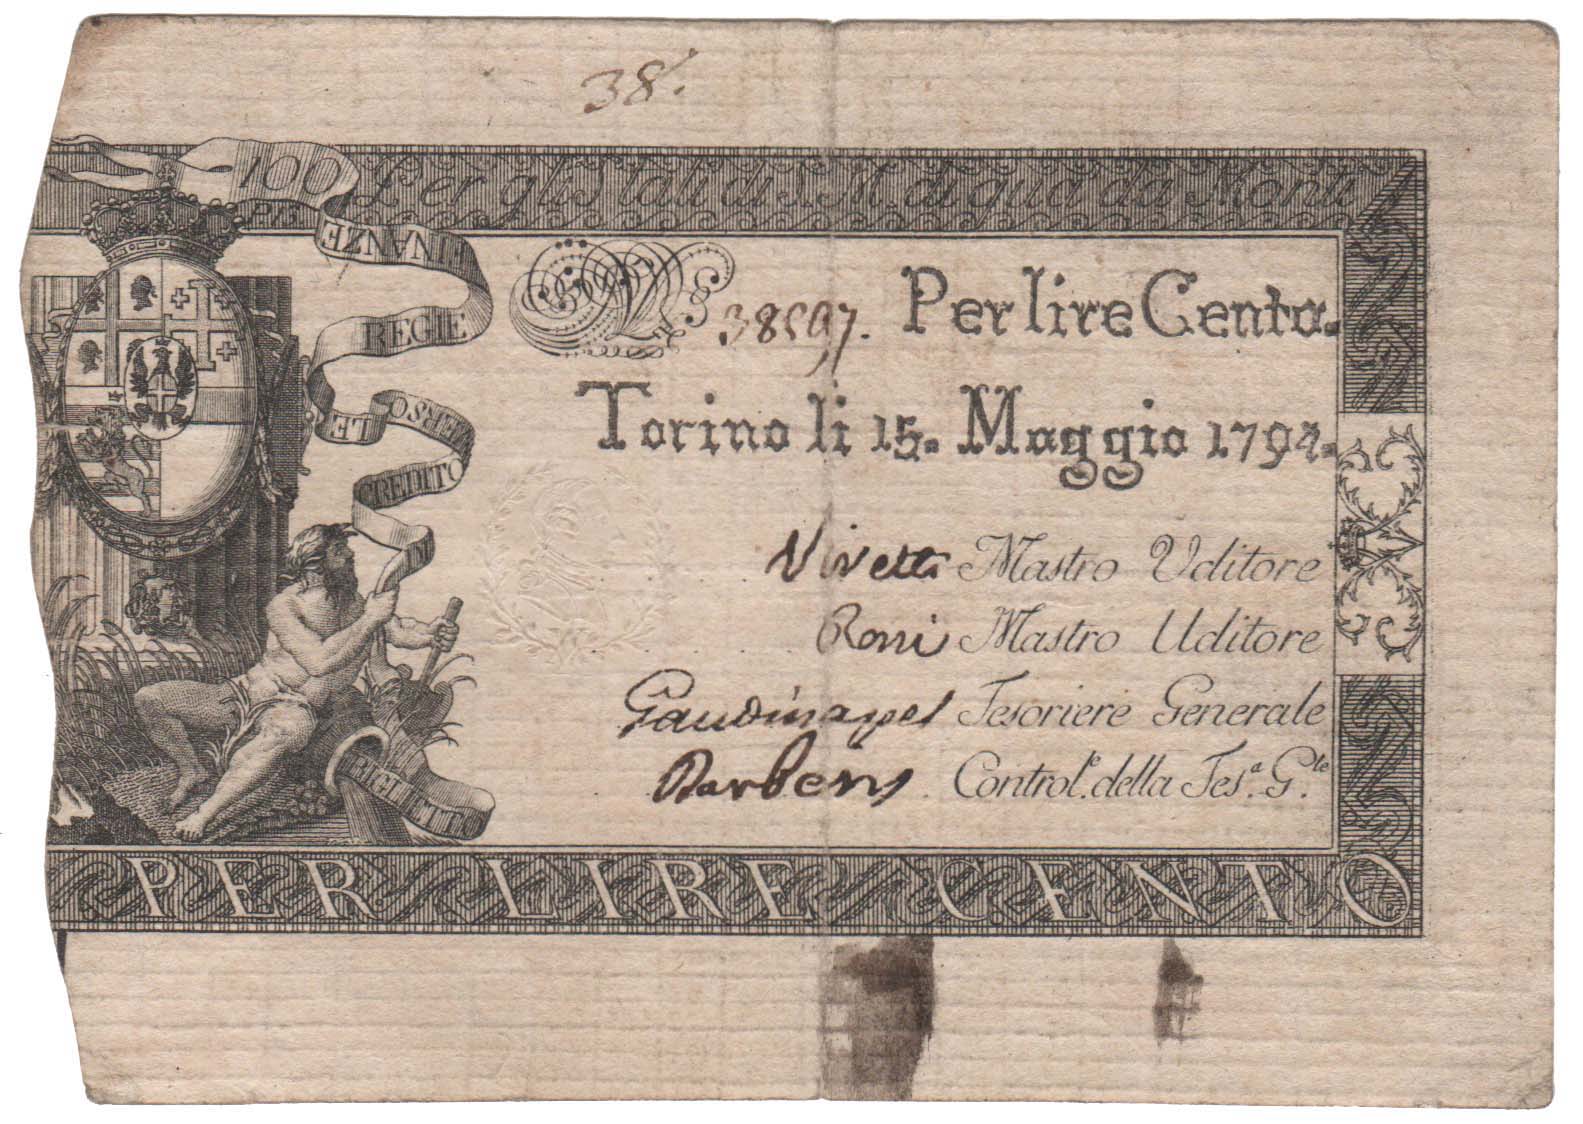 38.
100 Per gli Stati di S. M. di qua da Monti
PIS
FINANZE
REGIE
LE
VERSO
ET
CREDITO
DI
BIGLIETTO
38597. Per lire Cento.
Torino li 15. Maggio 1794.
Vivetti Mastro Uditore
Roni Mastro Uditore
Tesoriere Generale
Control.e della Tes.a G.le
PER LIRE CENTO